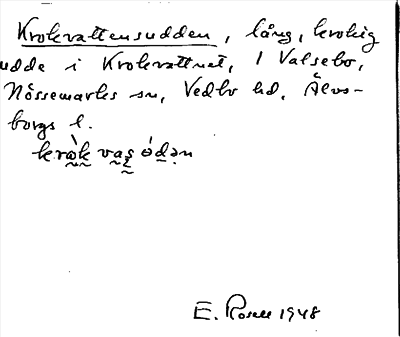 Krokvattensudden, lång, krokig
udde i Krokvattnet, 1 Valsebo,
Nössemarks sn, Vedbo hd, Älvs-
borgs l.
E. Rosell 1948